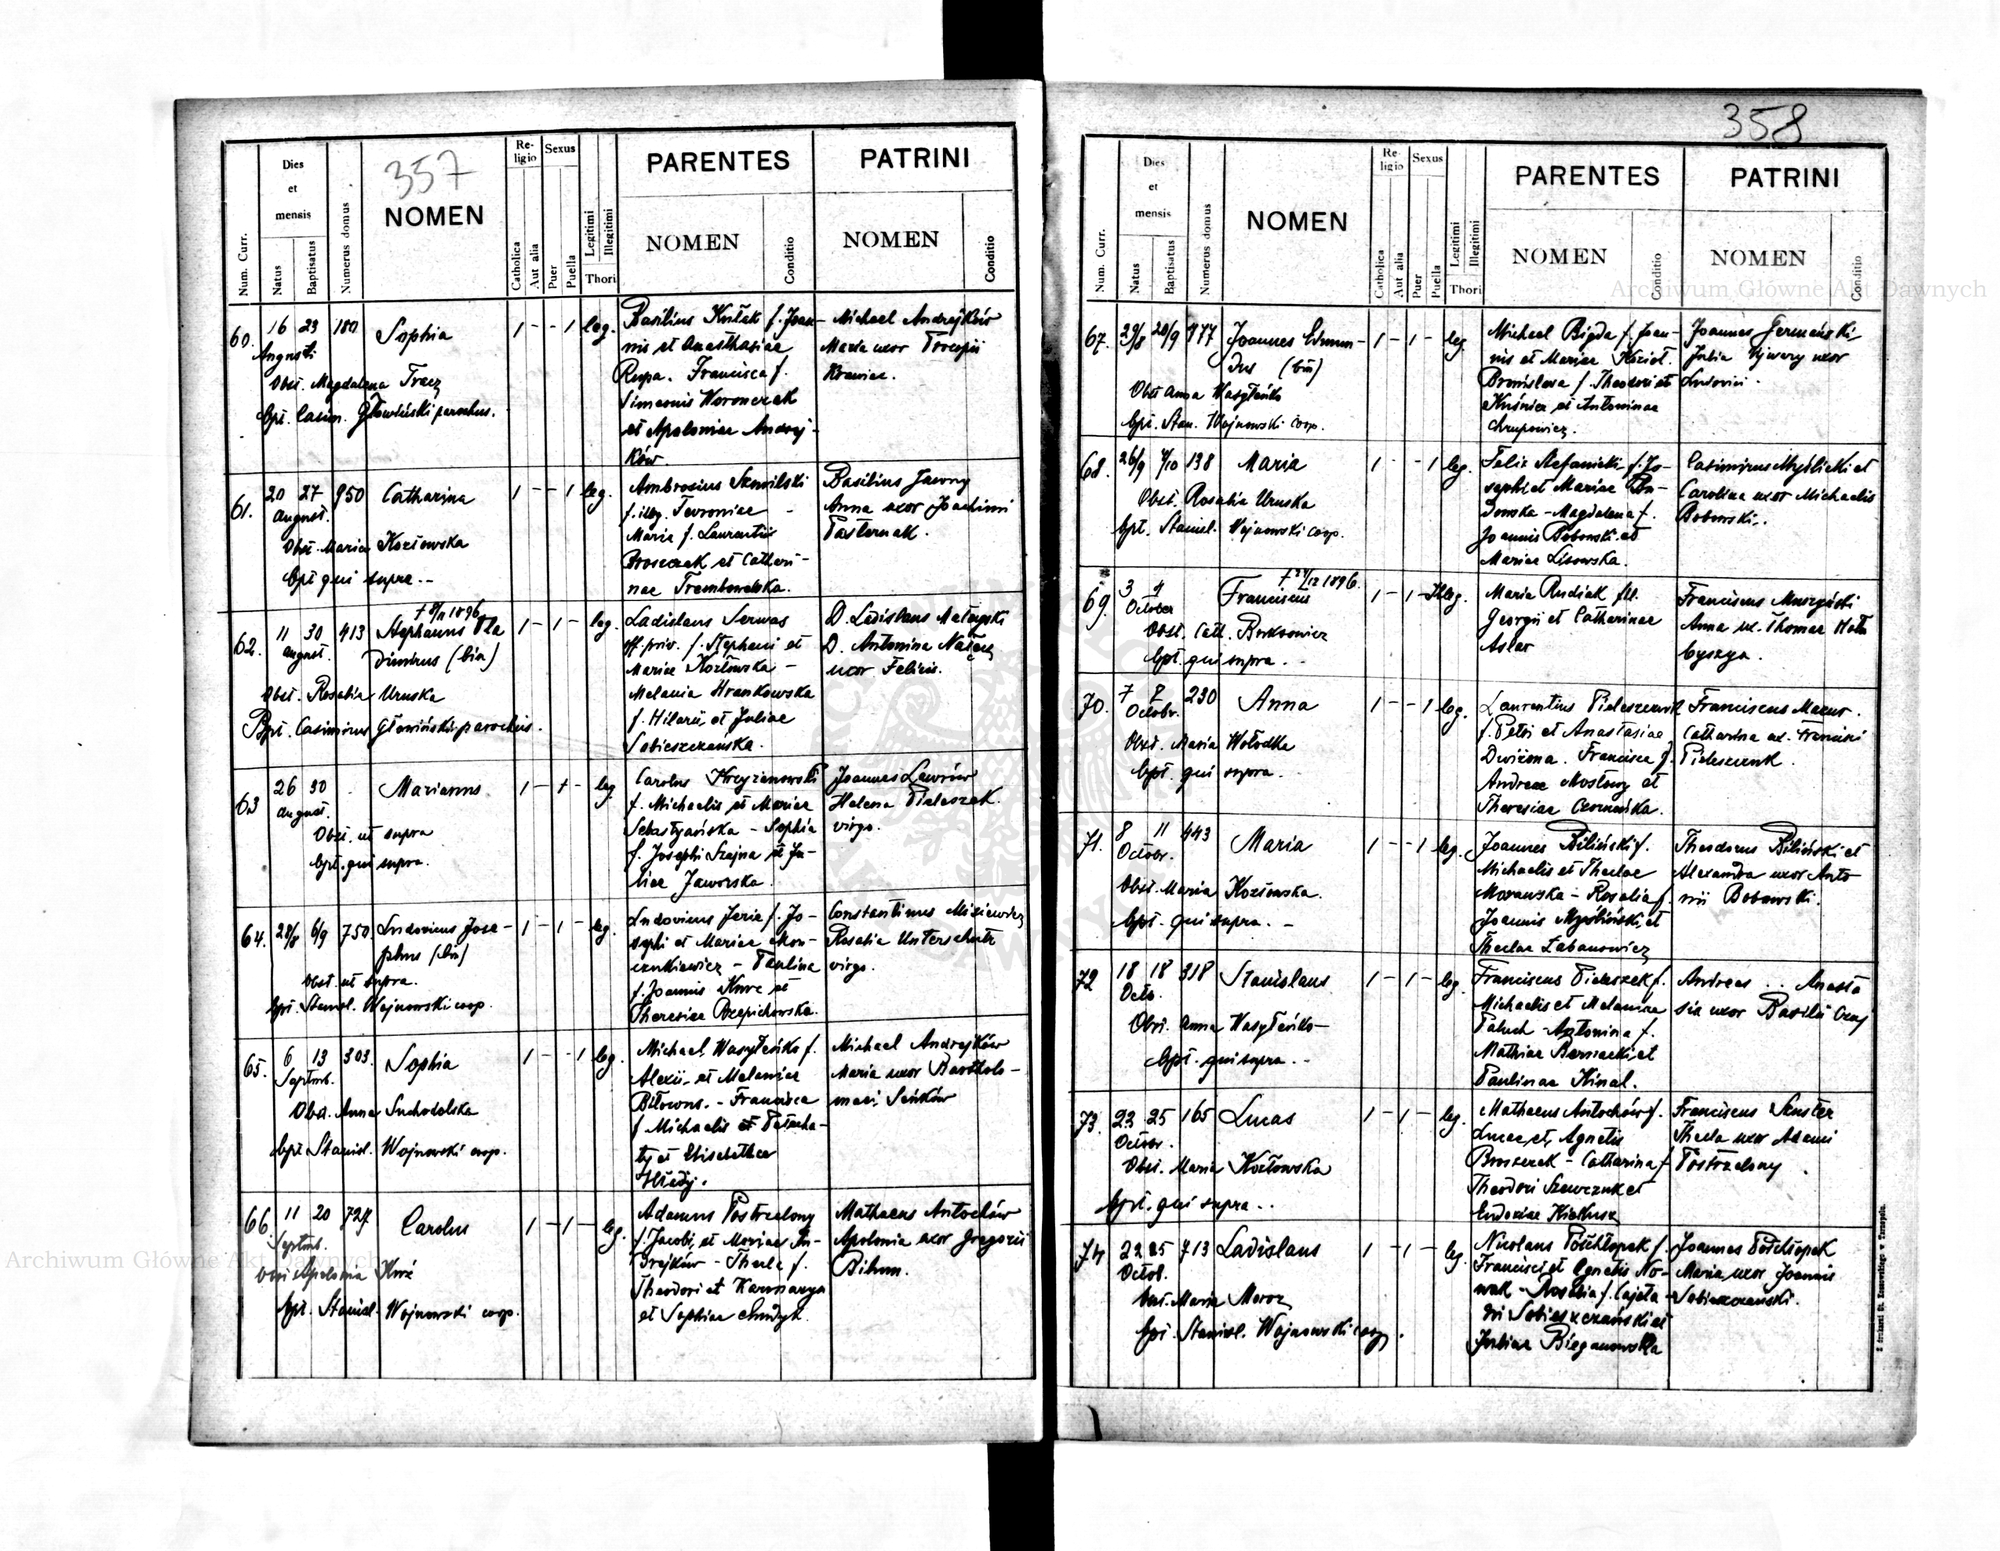 357
Num. Curr.
Dies et mensis
Natus
Baptisatus
Numerus domus
NOMEN
Religio
Catholica
Aut alia
Sexus
Puer
Puella
Legitimi
Illegitimi
Thori
PARENTES
NOMEN
Conditio
PATRINI
NOMEN
Conditio
60. 16 23 180 Sophia 1 - - 1 leg.
Augusti
Obst. Magdalena Tracz
bpt. Casim. Głowiński parochus.
Basilius Kuśak f. Joan-
nis et Anasthasiae
Francisca f.
Simeonis Woronczak
et Apoloniae Andrej-
ków.
Michael Andrejków
Maria uxor Procopii
Krawiec.
61. 20 27 950 Catharina 1 - - 1 leg.
August.
Obst. Maria Kozłowska
bpt qui supra. -
Ambrosius
f. illeg. Fevroniae -
Maria f. Laurentii
Broszczak et Cathari-
nae Trembowelska.
Basilius Jawny
Anna uxor Joachimi
Pasternak.
† 8/11 1896
62. 11 30 413 Stephanus Vla 1 - 1 - leg.
August. dimirus (bin)
Obst. Rosalia Uruska
Bpt. Casimirus Głowiński parochus.
Ladislaus Serwas
off. priv. f. Stephani et
Mariae Kozłowska -
Melania Hrankowska
f. Hilarii et Juliae
Sobieszczańska.
D. Ladislaus
D. Antonina
uxor Felicis.
63 26 30 Marianus 1 - 1 - leg
August.
Obst. ut supra
bpt. qui supra.
Carolus Krzyżanowski
f. Michaelis et Mariae
Sebastyańska - Sophia
f. Josephi Szajna et Ju-
liae Jaworska.
Joannes Lewków
Helena Pieleszek
virgo.
64. 28/8 6/9 750 Ludovicus Jose- 1 - 1 - leg.
phus (bin)
Obst. ut supra.
bpt. Stanisl. Wojnowski coop.
Ludovicus Jeria f. Jo-
sephi et Mariae Mon-
czukiewicz - Paulina
f. Joannis Kurc et
Theresiae Rzepichowska.
Constantinus Misiewicz
Rosalia
virgo.
65. 6 13 303. Sophia 1 - - 1 leg.
Septmb.
Obst. Anna Suchodolska
bpt Stanisl. Wojnowski coop.
Michael Wasyleńko f.
Alexii et Melaniae
Biłowus. - Francisca
f. Michaelis et
et Elisabethae
Michael Andrejków
Maria uxor Bartholo-
maei Seńków
66. 11 20 727 Carolus 1 - 1 - leg.
Septmb.
Obst Apolonia
bpt. Stanisl. Wojnowski coop.
Adamus Postrzelony
f. Jacobi et Mariae An-
drejków - Thecla f.
Theodori et
et Sophiae
Mathaeus Antochów
Apolonia uxor Gregorii
Bihun.
358
Num. Curr.
Dies et mensis
Natus
Baptisatus
Numerus domus
NOMEN
Religio
Catholica
Aut alia
Sexus
Puer
Puella
Legitimi
Illegitimi
Thori
PARENTES
NOMEN
Conditio
PATRINI
NOMEN
Conditio
67. 29/8 20/9 777 Joannes Edmun- 1 - 1 - leg
dus (bin)
Obst Anna Wasyleńko
bpt. Stan. Wojnowski coop.
Michael Bigda f. Joan-
nis et Mariae Kozioł.
Bronislava f. Theodori et
Kuśnierz et Antoninae
Chrupowicz.
Joannes Germański
Julia uxor
Ludovici.
68. 26/9 4/10 138 Maria 1 - 1 leg.
Obst. Rosalia Uruska
bpt. Stanisl. Wojnowski coop.
Felix Stefanicki f. Jo-
sephi et Mariae
- Magdalena f.
Joannis Bobowski et
Mariae Lisowska.
Casimirus Myślicki et
Carolina uxor Michaelis
Bobowski.
† 24/12 1896.
69. 3 4 Franciscus 1 - 1 - Illeg.
October
Obst. Cath.
bpt. qui supra. -
Maria Rudiak fil.
Georgii et Catharinae
Aslar
Franciscus
Anna ux. Thomae
70. 7 8 230 Anna 1 - - 1 leg.
Octobr.
Obst. Maria Wołodka
bpt. qui supra. -
Laurentius Pieleszczuk
f. Petri et Anastasiae
Francisca f.
Andreae et
Theresiae
Franciscus Mazur.
Catharina ux. Francisci
Pieleszczuk.
71. 8 11 443 Maria 1 - - 1 leg.
Octobr.
Obst. Maria Kozłowska.
bpt. qui supra. -
Joannes Biliński f.
Michaelis et Theclae
Morawska - Rosalia f.
Joannis Myśliński et
Theclae Zabanowicz
Theodorus Biliński et
Alexandra uxor Anto-
nii Bobowski.
72 18 18 318 Stanislaus 1 - 1 - leg.
Octo.
Obst. Anna Wasyleńko -
bpt. qui supra. -
Franciscus Pieleszek f.
Michaelis et Melaniae
Paluch Antonina f.
Mathiae Bernacki et
Paulinae Kinal.
Andreas . . Anasta
sia uxor Basilii
73. 23 25 165 Lucas 1 - 1 - leg.
Octobr.
Obst. Maria Kozłowska
bpt. qui supra. .
Mathaeus Antochów f.
Lucae et Agnetis
Broszczak - Catharina f.
Theodori Szewczuk et
Eudoxiae
Franciscus Szuster
Thecla uxor Adami
Postrzelony .
74 22 25 713 Ladislaus 1 - 1 - leg
Octob.
Obst. Maria Moroz
bpt. Stanisl. Wojnowski coop.
Nicolaus Pośchłopek f.
Francisci et Agnetis No-
wak - Rosalia f. Cajeta-
ni Sobieszczański et
Juliae Bieganowska
Joannes Pośchłopek
Maria uxor Joannis
Sobieszczański.
Archiwum Główne Akt Dawnych
Archiwum Główne Akt Dawnych